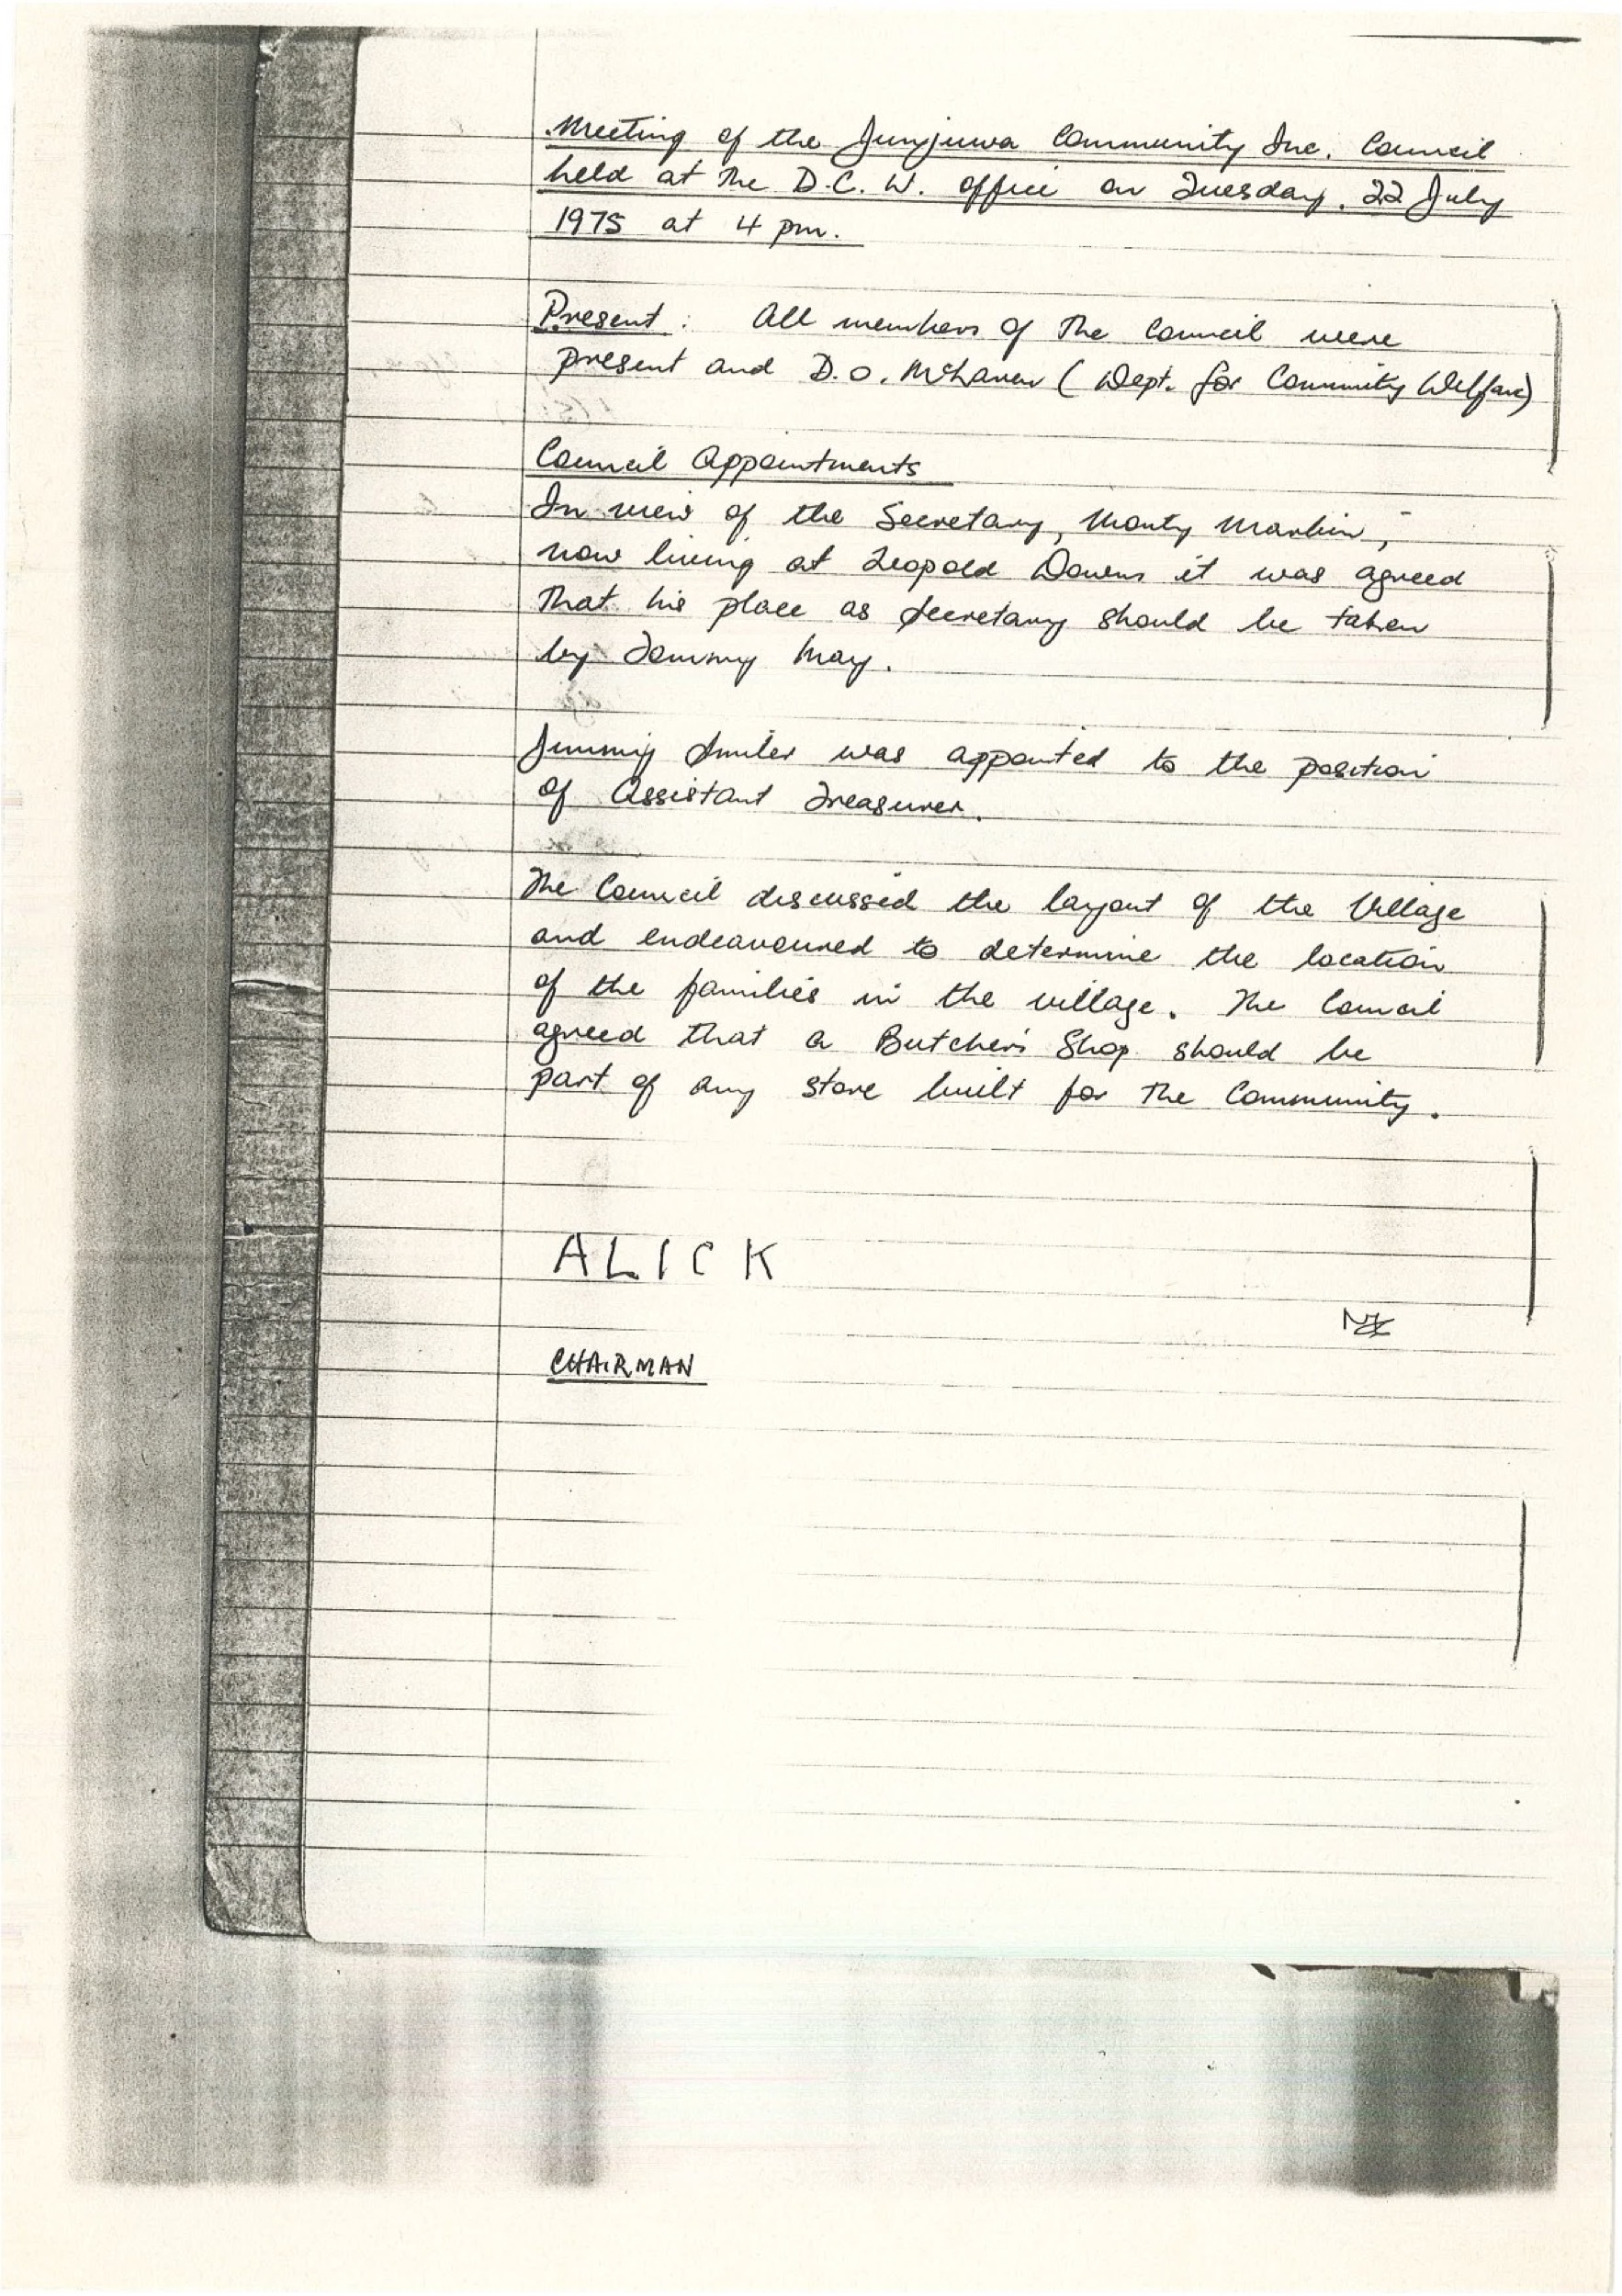 Meeting of the Junjuwa Community Inc. Council
held at the D.C.W. office on Tuesday, 22 July
1975 at 4 pm.
Present: All members of the Council were
present and D.O. McLaren (Dept. for Community Welfare)
Council Appointments
In view of the Secretary, Monty
now living at Leopold Downs it was agreed
that his place as Secretary should be taken
by Tommy May.
Jimmy was appointed to the position
of Assistant Treasurer.
The Council discussed the layout of the Village
and endeavoured to determine the location
of the families in the village. The Council
agreed that a Butchers Shop should be
part of any store built for the Community.
ALICK
CHAIRMAN